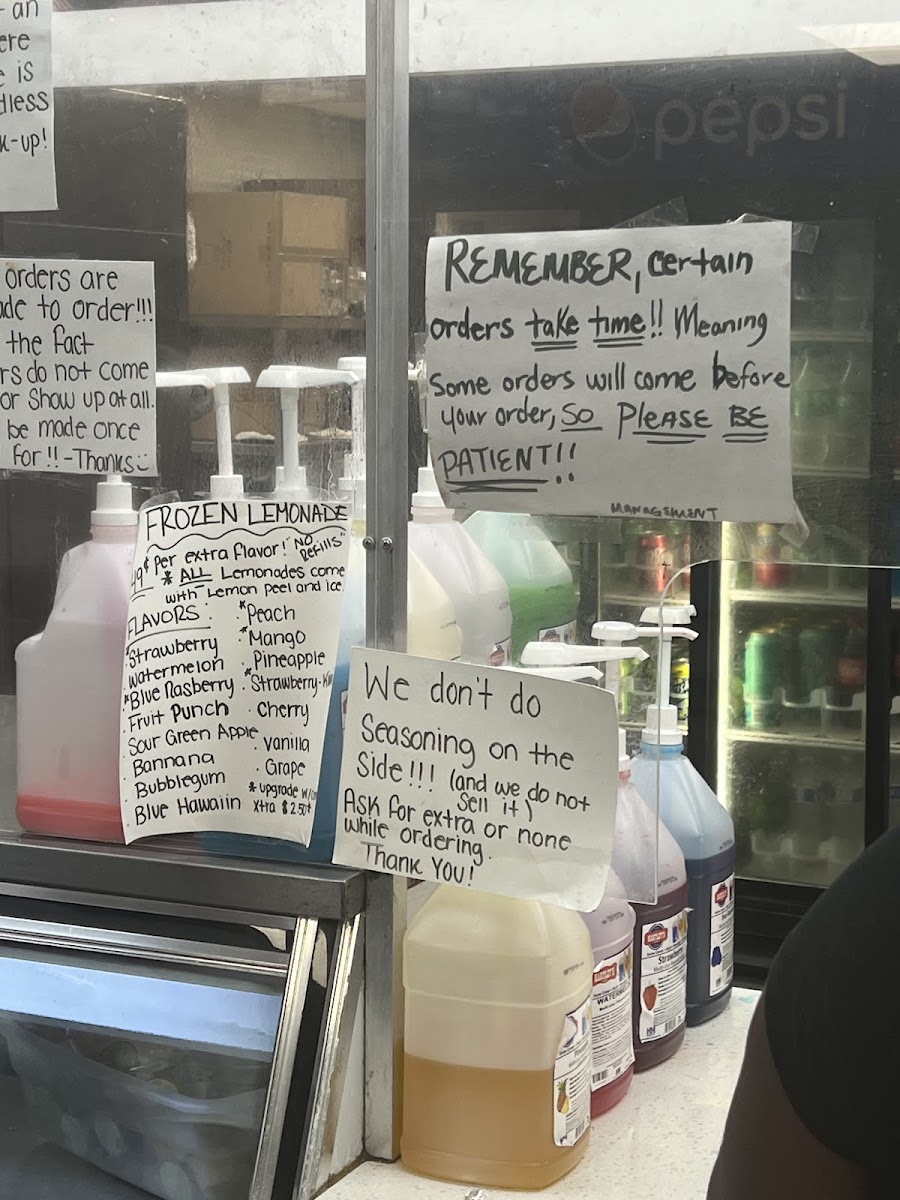 an
ere
e is
dless
k-up!
orders are
ade to order!!!
the fact
rs do not come
or Show up at all.
be made once
for!! -Thanks
pepsi
REMEMBER, certain
orders take time!! Meaning
Some orders will come before
your order, SO PLEASE BE
PATIENT!!
MANAGEMENT
FROZEN LEMONADE
49¢ Per extra flavor! "NO Refills"
* ALL Lemonades come
with Lemon peel and Ice
FLAVORS:
Strawberry
Watermelon
*Blue Rasberry
Fruit Punch
Sour Green Apple
Bannana
Bubblegum
Blue Hawaiin
*Peach
*Mango
*Pineapple
Strawberry-Ki
Cherry
Vanilla
Grape
* upgrade w/
xtra $2.50
We don't do
Seasoning on the
Side!!! (and we do not
Sell it)
Ask for extra or none
while ordering.
Thank You!
WATERM
Strawb